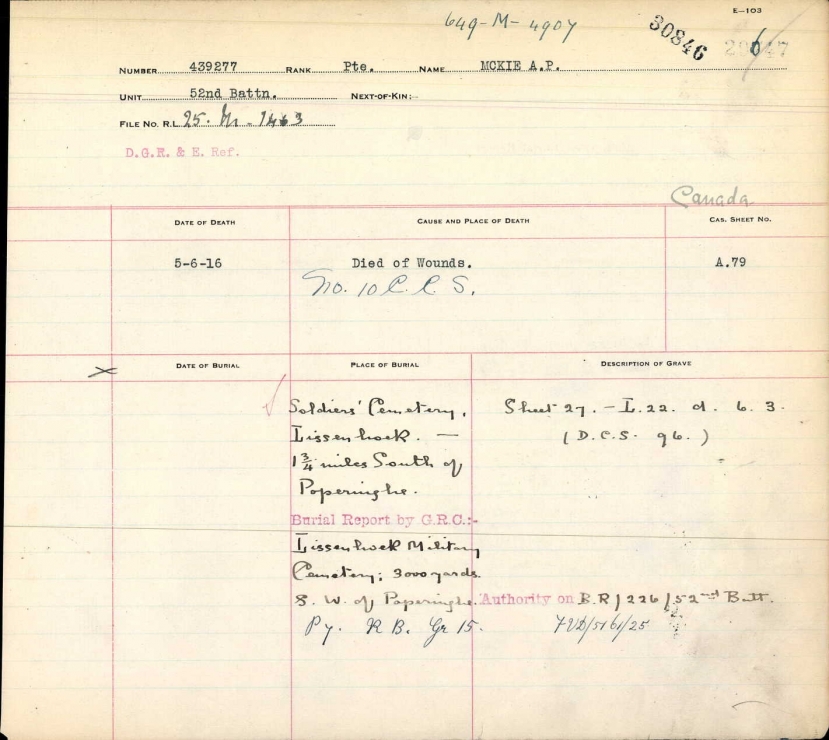 E-103
649-M-4907
30846
NUMBER 439277 RANK Pte. NAME MCKIE A.P.
UNIT 52nd Battn. NEXT-OF-KIN:-
FILE No. R.L. 25. M. 1463
D.G.R. & E. Ref.
Canada
DATE OF DEATH CAUSE AND PLACE OF DEATH CAS. SHEET NO.
5-6-16 Died of Wounds. A.79
No. 10 C. C. S.
DATE OF BURIAL PLACE OF BURIAL DESCRIPTION OF GRAVE
Soldiers' Cemetery, Sheet 27. - L. 22. d. 6. 3.
Lissenhoek. — (D.C.S. 96.)
1 3/4 miles South of
Poperinghe.
Burial Report by G.R.C.:-
Lissenhoek Military
Cemetery; 3000 yards.
S. W. of Poperinghe. Authority on B.R/226/52nd Batt.
Py. R B. Gr 15.